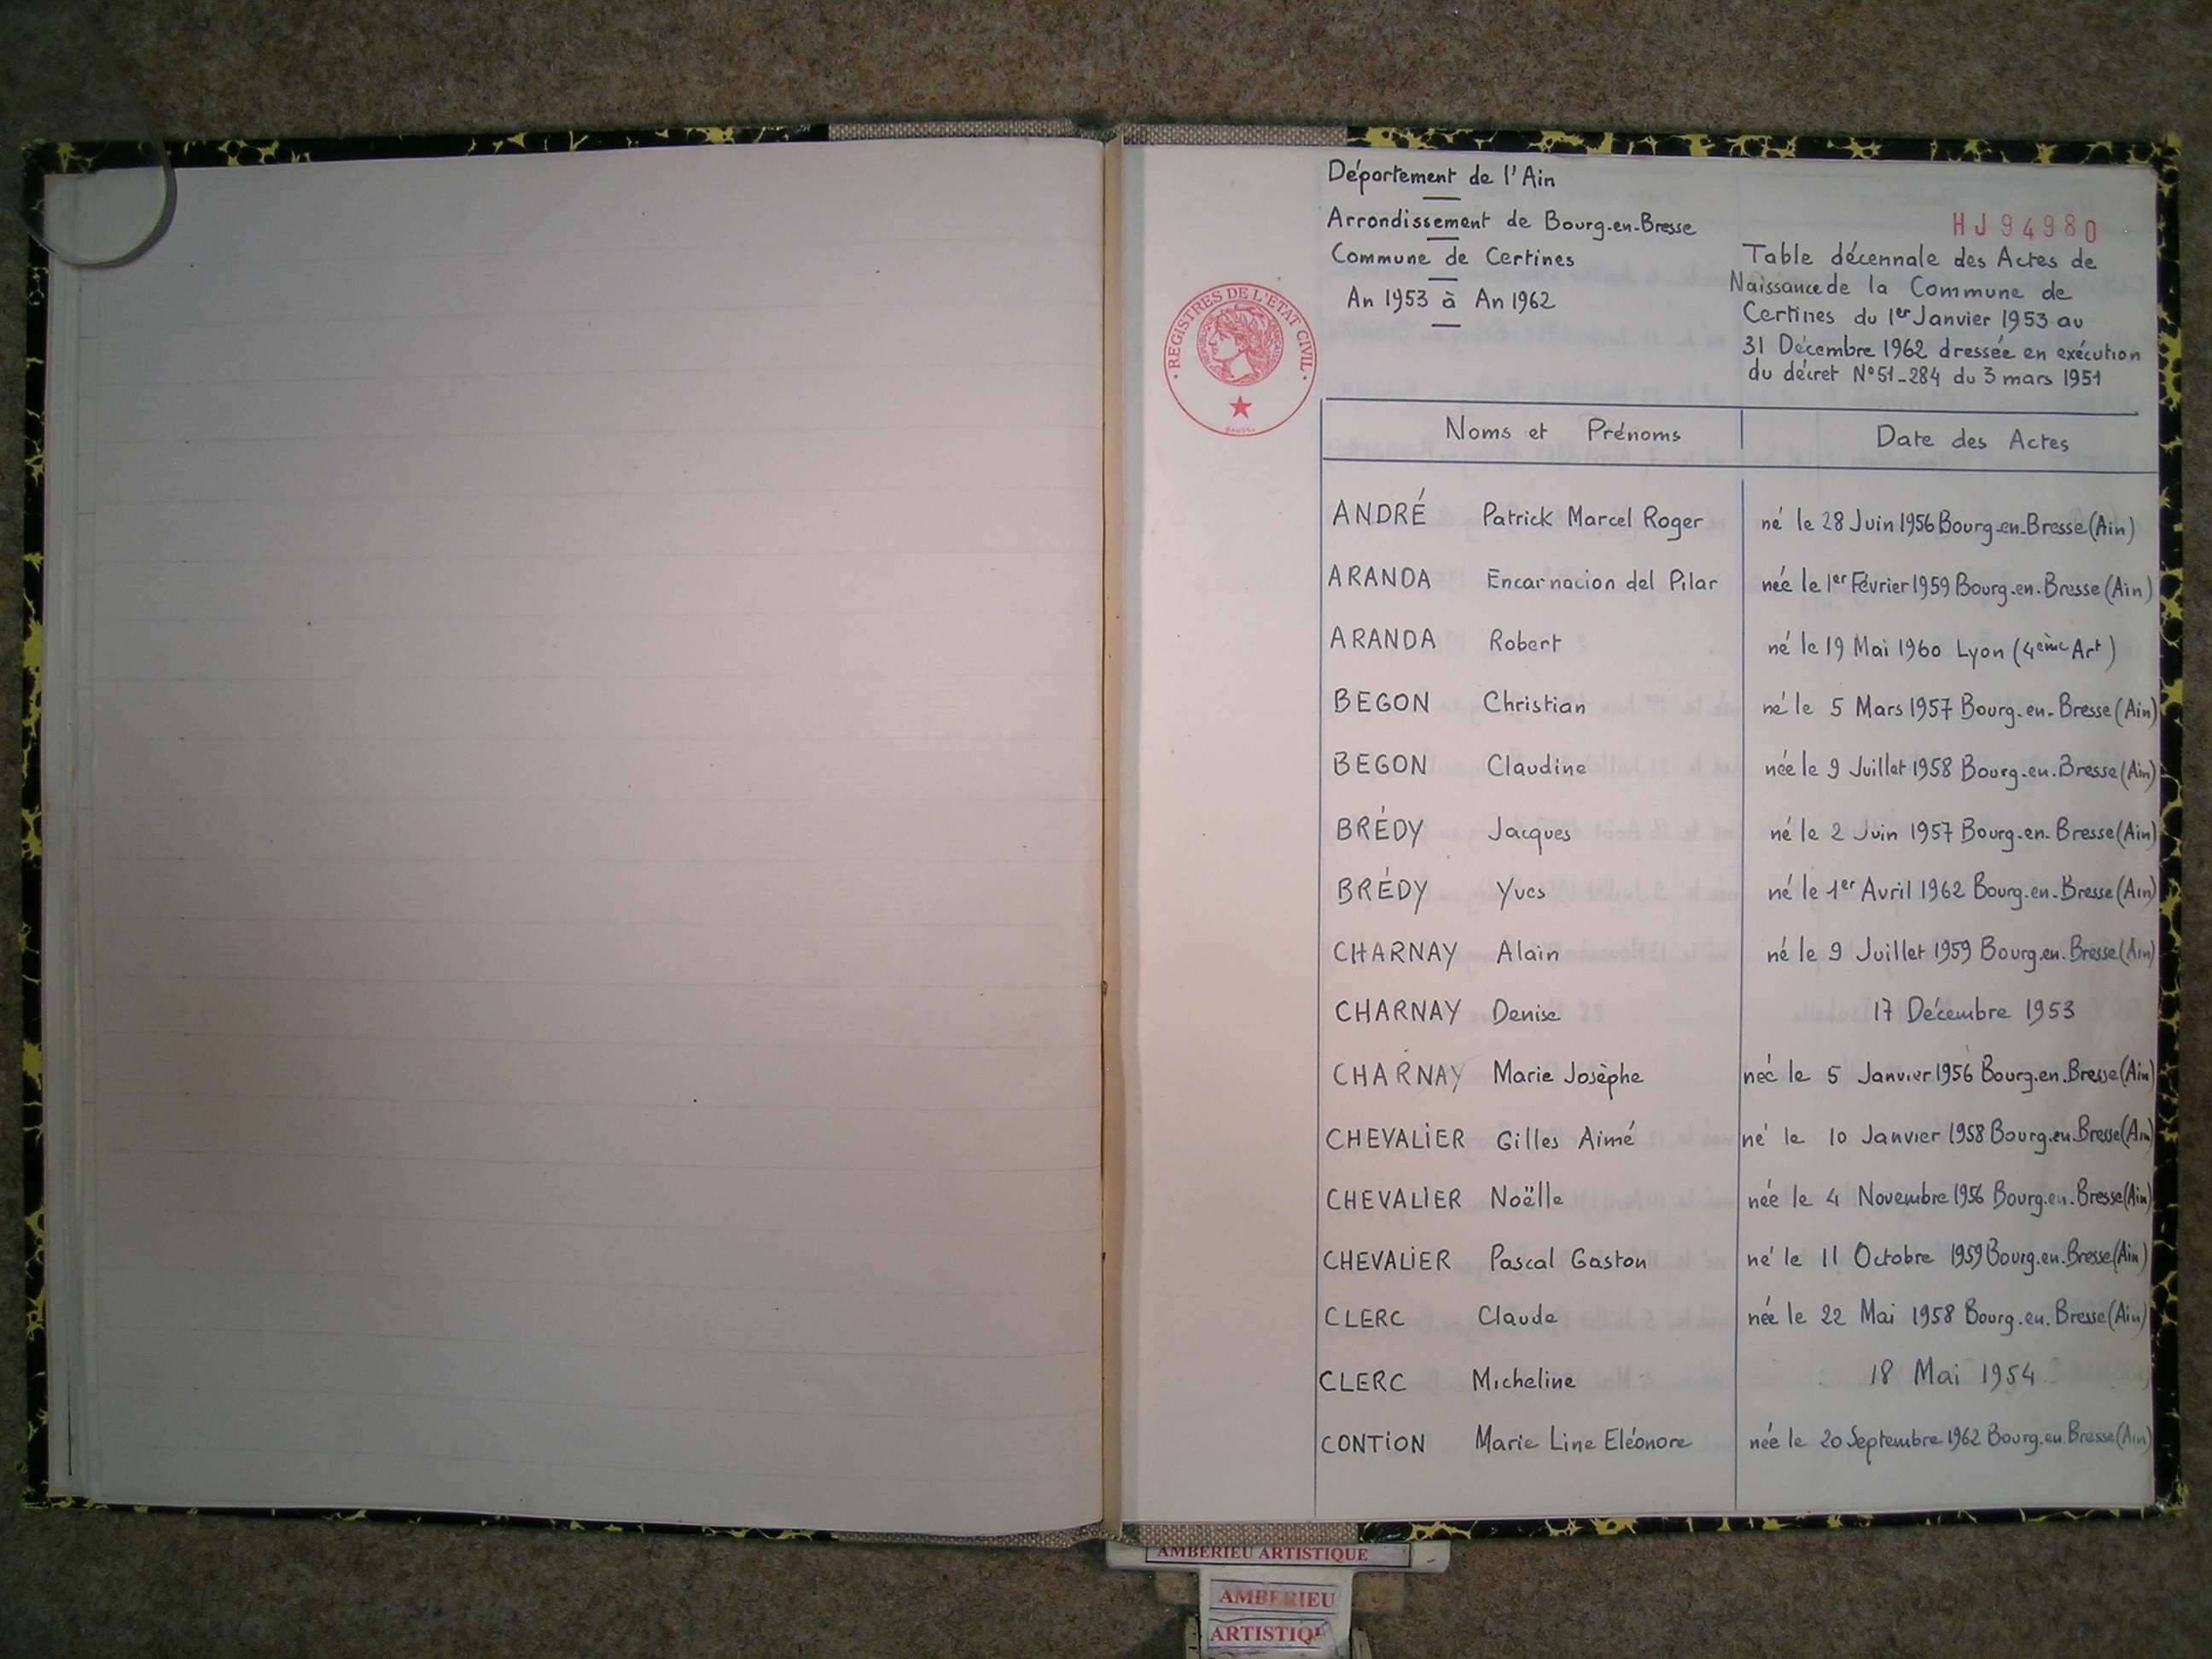 Département de l'Ain
Arrondissement de Bourg-en-Bresse
Commune de Certines
An 1953 à An 1962
REGISTRES DE L'ETAT CIVIL
HJ94980
Table décennale des Actes de
Naissance de la Commune de
Certines du 1er Janvier 1953 au
31 Décembre 1962 dressée en exécution
du décret N°51-284 du 3 mars 1951
Noms et Prénoms Date des Actes
ANDRÉ Patrick Marcel Roger né le 28 Juin 1956 Bourg-en-Bresse (Ain)
ARANDA Encarnacion del Pilar née le 1er Février 1959 Bourg-en-Bresse (Ain)
ARANDA Robert né le 19 Mai 1960 Lyon (4ème Art)
BEGON Christian né le 5 Mars 1957 Bourg-en-Bresse (Ain)
BEGON Claudine née le 9 Juillet 1958 Bourg-en-Bresse (Ain)
BRÉDY Jacques né le 2 Juin 1957 Bourg-en-Bresse (Ain)
BRÉDY Yves né le 1er Avril 1962 Bourg-en-Bresse (Ain)
CHARNAY Alain né le 9 Juillet 1959 Bourg-en-Bresse (Ain)
CHARNAY Denise 17 Décembre 1953
CHARNAY Marie Josèphe neé le 5 Janvier 1956 Bourg-en-Bresse (Ain)
CHEVALIER Gilles Aimé né le 10 Janvier 1958 Bourg-en-Bresse (Ain)
CHEVALIER Noëlle née le 4 Novembre 1956 Bourg-en-Bresse (Ain)
CHEVALIER Pascal Gaston né le 11 Octobre 1959 Bourg-en-Bresse (Ain)
CLERC Claude née le 22 Mai 1958 Bourg-en-Bresse (Ain)
CLERC Micheline 18 Mai 1954
CONTION Marie Line Eléonore née le 20 Septembre 1962 Bourg-en-Bresse (Ain)
AMBERIEU ARTISTIQUE
AMBERIEU
ARTISTIQU